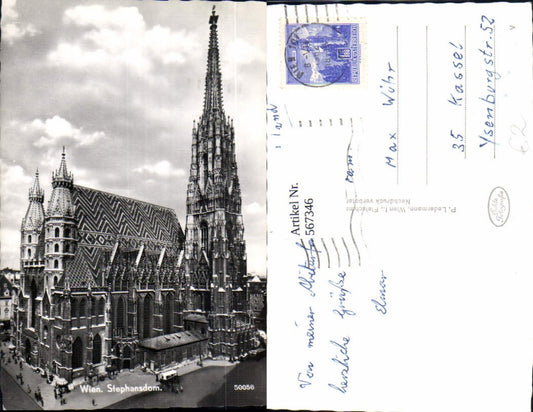 Wien. Stephansdom.
50056
Max Wöhr
35 Kassel
Ysenburgstr. 52
Artikel Nr.
567346
P. Ledermann, Wien I., Fleischm
Nachdruck verboten
Von meiner
herzliche Grüße
Elmar